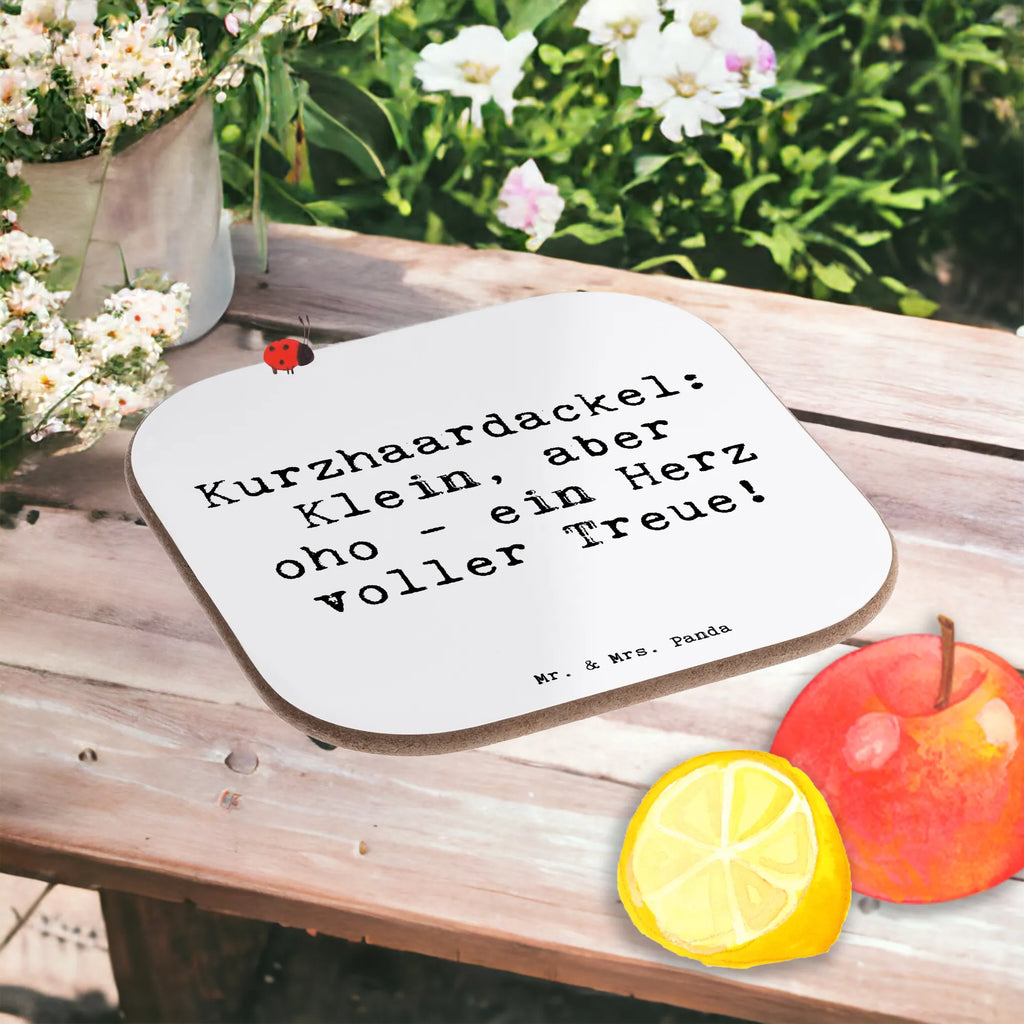 Kurzhaardackel:
Klein, aber
oho - ein Herz
voller Treue!
Mr. & Mrs. Panda